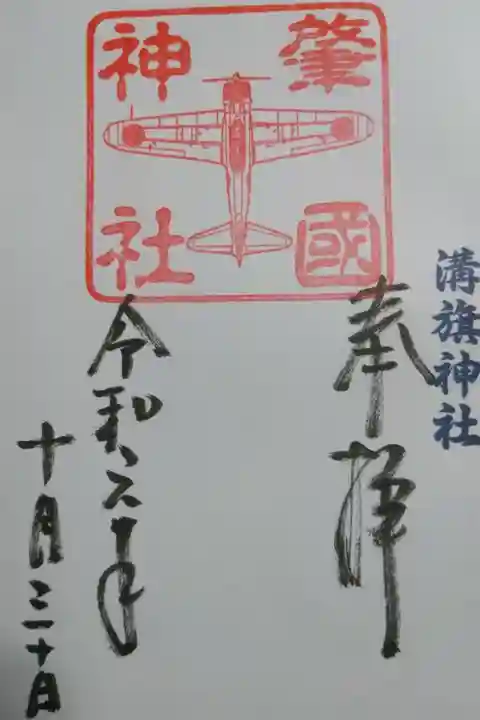 溝旗神社
肇國
神社
奉拝
令和六年
十月三十日